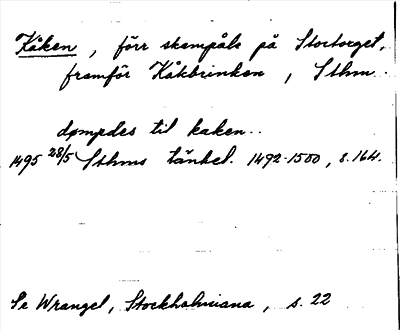 Kåken, förr skampåle på Stortorget,
framför Kåkbrinken, Sthm.
dømdes til kaken..
1495 28/5 Sthms tänkeb. 1492-1500, s. 164.
Se Wrangel, Stockholmiana, s. 22